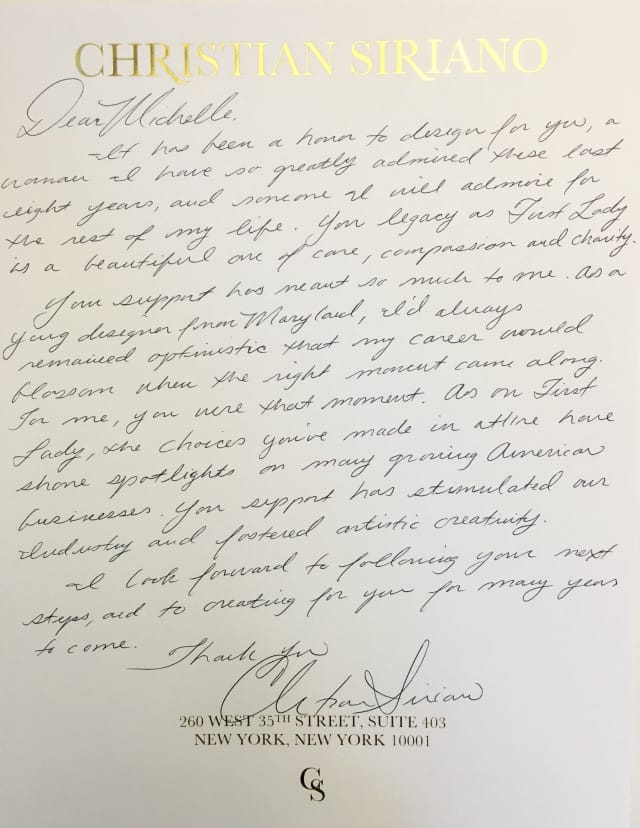 CHRISTIAN SIRIANO
Dear Michelle,
It has been a honor to design for you, a
woman I have so greatly admired these last
eight years, and someone I will admire for
the rest of my life. Your legacy as First Lady
is a beautiful one of care, compassion and charity.
Your support has meant so much to me. As a
young designer from Maryland, I'd always
remained optimistic that my career would
blossom when the right moment came along.
For me, you were that moment. As our First
Lady, the choices you've made in attire have
shone spotlights on many growing American
businesses. Your support has stimulated our
industry and fostered artistic creativity.
I look forward to following your next
steps, and to creating for you for many years
to come. Thank you
Christian Siriano
260 WEST 35TH STREET, SUITE 403
NEW YORK, NEW YORK 10001
CS